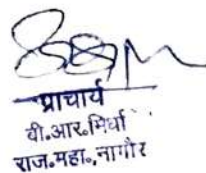 प्राचार्य
बी.आर.मिर्धा
राज.महा.,नागौर